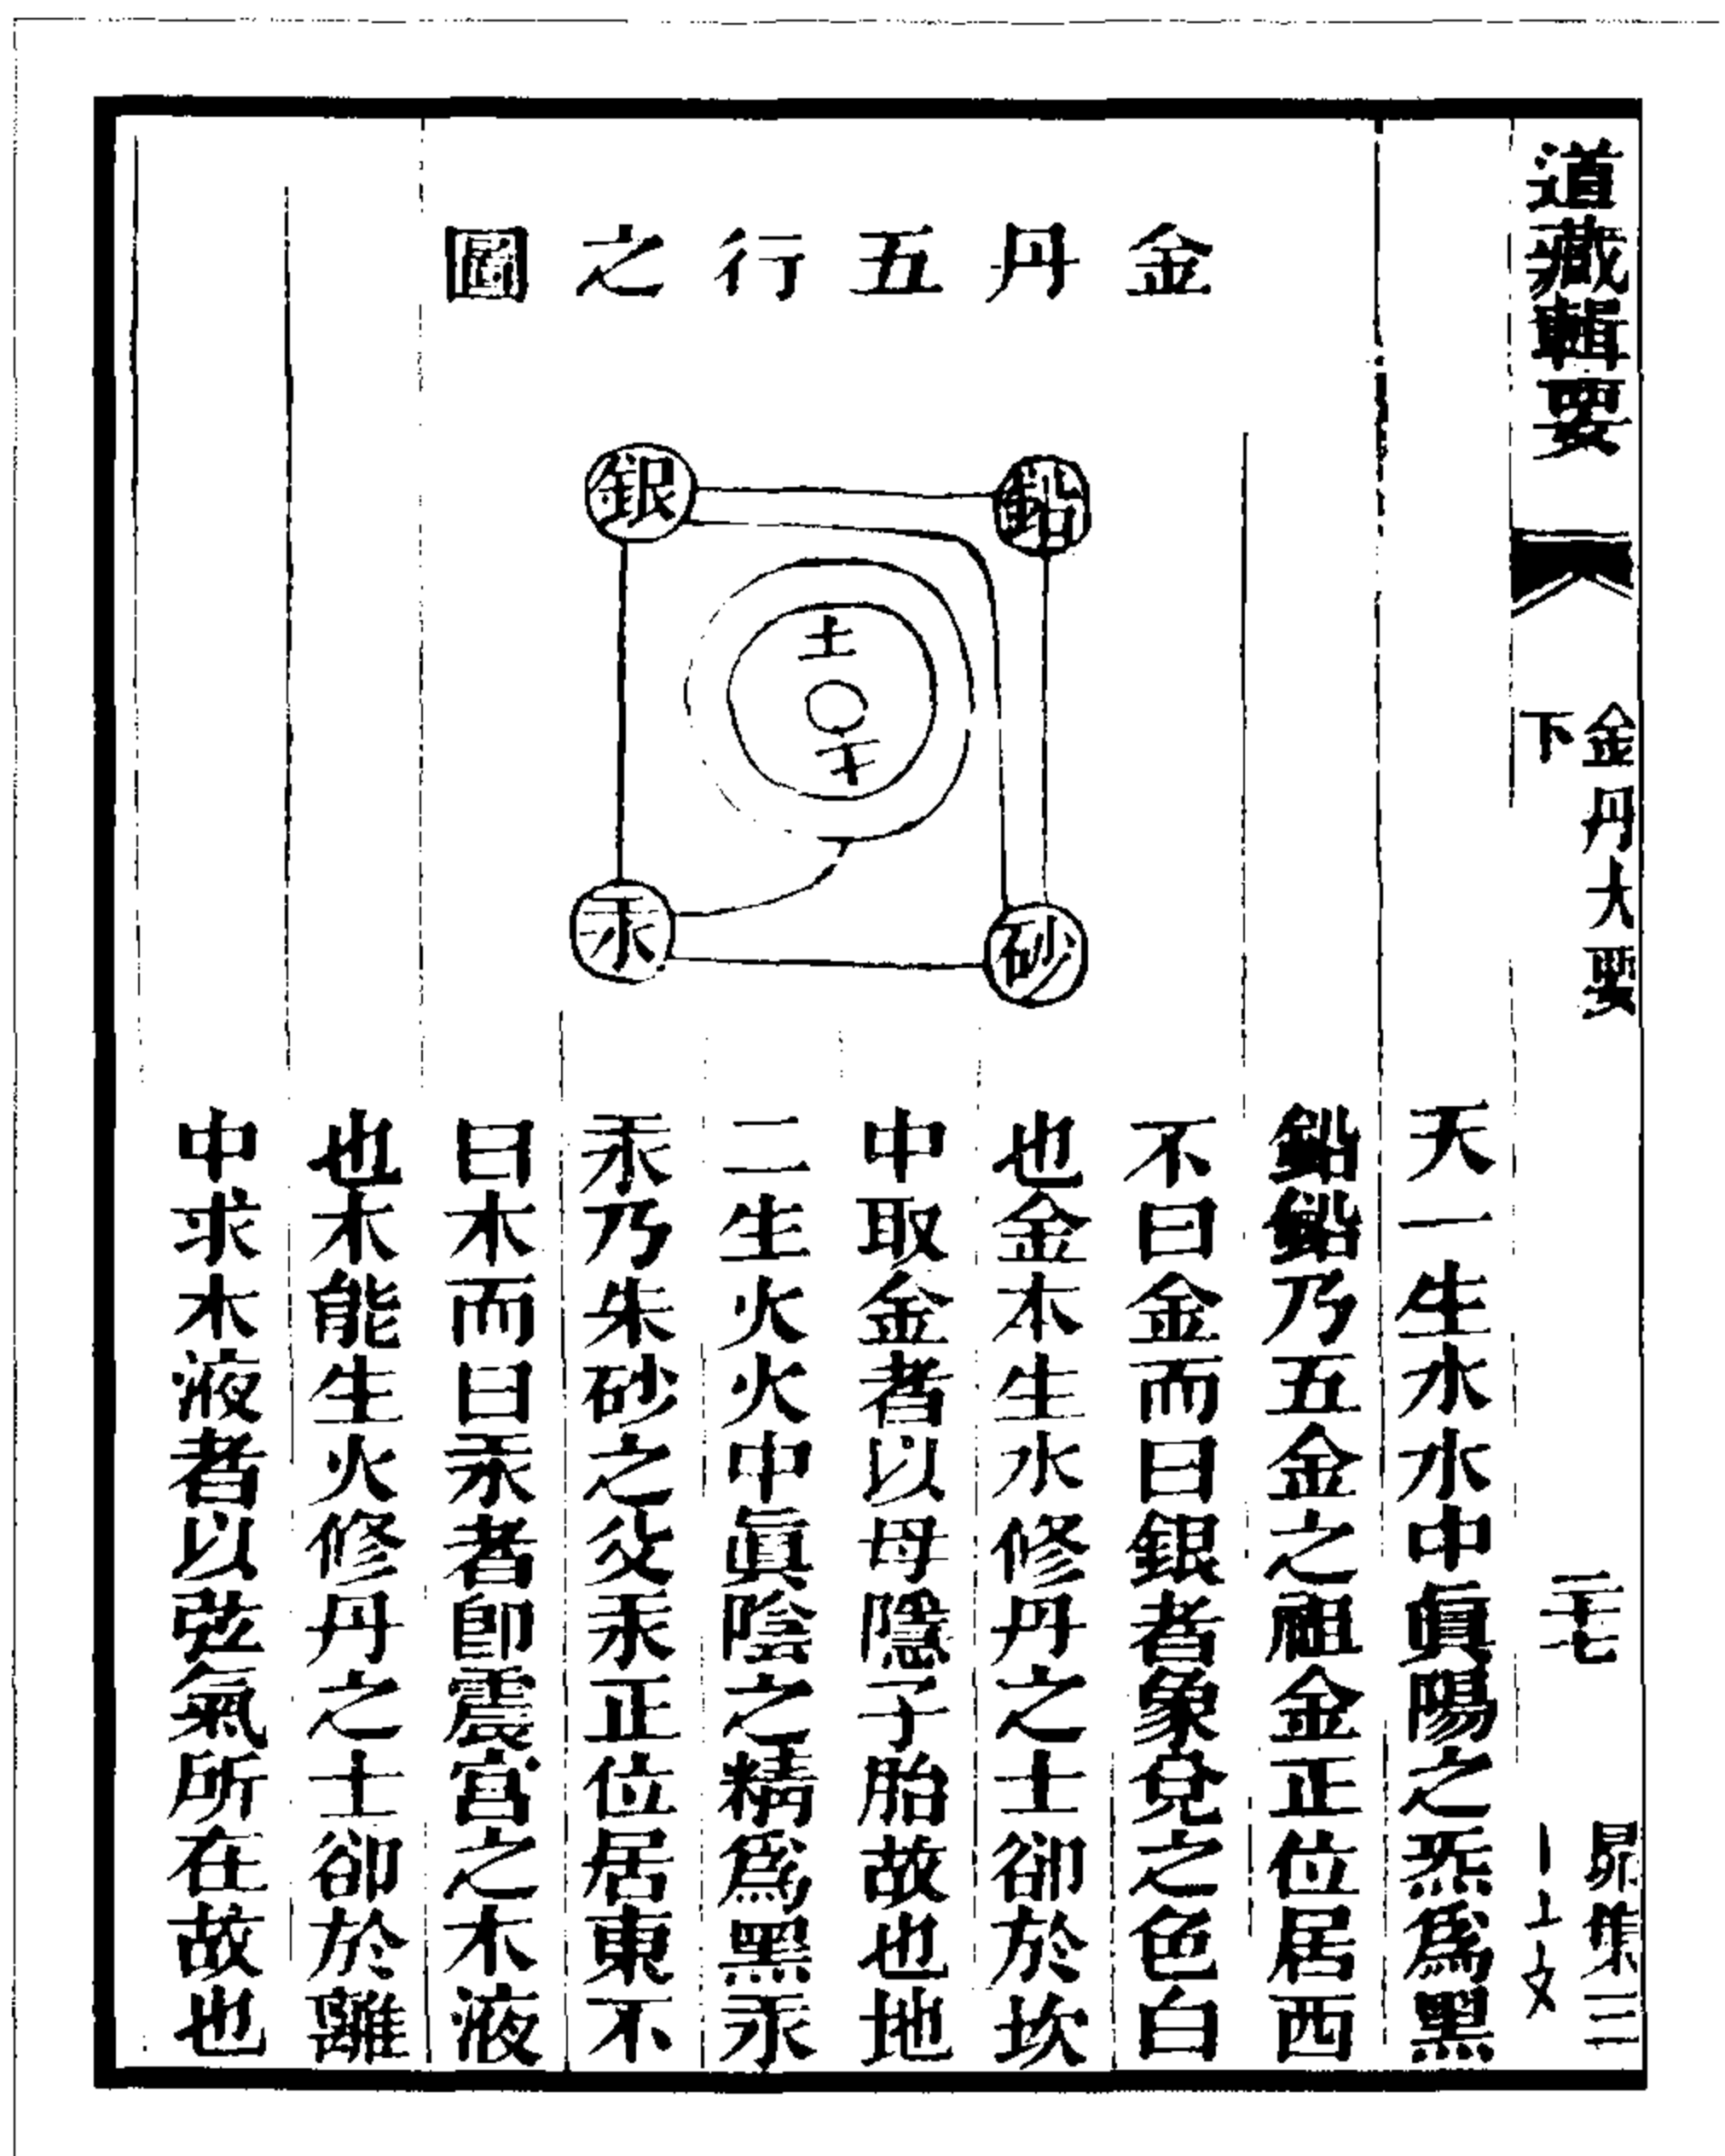 道藏輯要
金丹大要
下
二十七
昴集三
金丹五行之圖
鉛
銀
土
汞
砂
天一生水水中眞陽之炁爲黑
鉛鉛乃五金之祖金正位居西
不曰金而曰銀者象兌之色白
也金本生水修丹之士卻於坎
中取金者以母隱子胎故也地
二生火火中眞陰之精爲黑汞
汞乃朱砂之父汞正位居東不
曰木而曰汞者卽震宮之木液
也木能生火修丹之士卻於離
中求木液者以弦氣所在故也